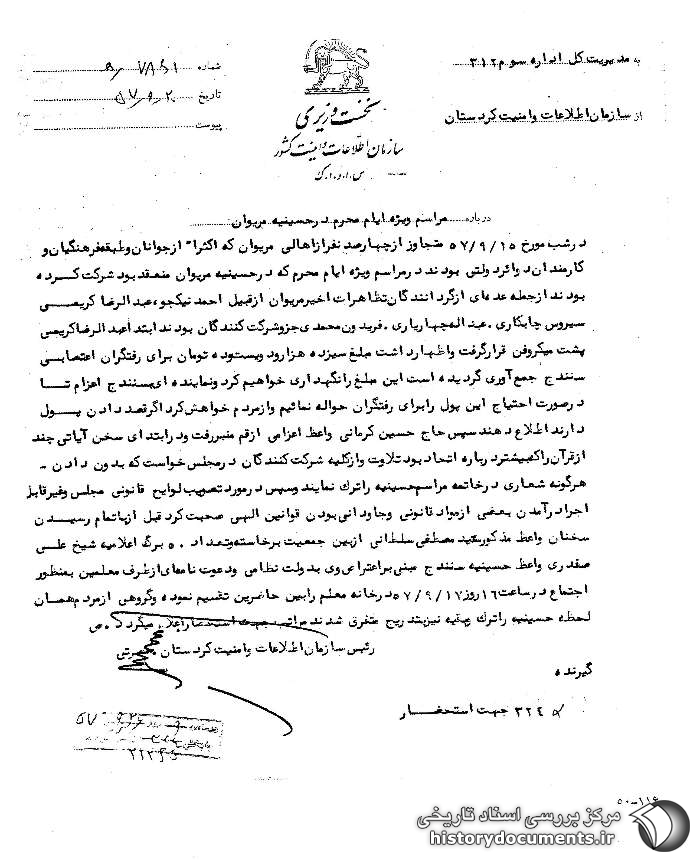 به مدیریت کل اداره سوم ۳۱۲
از سازمان اطلاعات و امنیت کردستان
نخست وزیری
سازمان اطلاعات و امنیت کشور
س.ا.و.ا.ک
شماره
تاریخ
پیوست
درباره مراسم ویژه ایام محرم در حسینیه مریوان
در شب مورخ ۵۷/۹/۱۵ متجاوز از چهارصد نفر از اهالی مریوان که اکثرا" از جوانان و طبقه فرهنگیان و
کارمندان دوائر دولتی بودند در مراسم ویژه ایام محرم که در حسینیه مریوان منعقد بود شرکت کرده
بودند از جمله عده‌ای از گردانندگان تظاهرات اخیر مریوان از قبیل احمد نیکجو، عبدالرضا کریمی
سیروس چابکاری، عبداله چهاریاری، فریدون محمدی جزو شرکت کنندگان بودند ابتدا عبدالرضا کریمی
پشت میکروفن قرار گرفت و اظهار داشت مبلغ سیزده هزار و دویست و ده تومان برای رفتگران اعتصابی
سنندج جمع آوری گردیده است این مبلغ را نگهداری خواهیم کرد و نماینده‌ای به سنندج اعزام تا
در صورت احتیاج این پول را برای رفتگران حواله نمائیم و از مردم خواهش کرد اگر قصد دادن پول
دارند اطلاع دهند سپس حاج حسین کرمانی واعظ اعزامی از قم منبر رفت و در ابتدای سخن آیاتی چند
از قرآن را که بیشتر درباره اتحاد بود تلاوت و از کلیه شرکت کنندگان در مجلس خواست که بدون دادن
هرگونه شعاری در خاتمه مراسم حسینیه را ترک نمایند و سپس در مورد تصویب لوایح قانونی مجلس و غیرقابل
اجرا درآمدن بعضی از مواد قانونی و جاودانی بودن قوانین الهی صحبت کرد قبل از باتمام رسیدن
سخنان واعظ مذکور سید مصطفی سلطانی از بین جمعیت برخاسته و تعداد ۵۰ برگ اعلامیه شیخ علی
صفدری واعظ حسینیه سنندج مبنی بر اعتراض وی به دولت نظامی و دعوت نامه‌ای از طرف معلمین بمنظور
اجتماع در ساعت ۱۶ روز ۵۷/۹/۱۷ در خانه معلم را بین حاضرین تقسیم نموده و گروهی از مردم همان
لحظه حسینیه را ترک و بقیه نیز بتدریج متفرق شدند مراتب جهت استحضار اعلام میگردد. ص
رئیس سازمان اطلاعات و امنیت کردستان
گیرنده
۳۲۴ جهت استحضار
۵۰-۱۱۶
مرکز بررسی اسناد تاریخی
historydocuments.ir